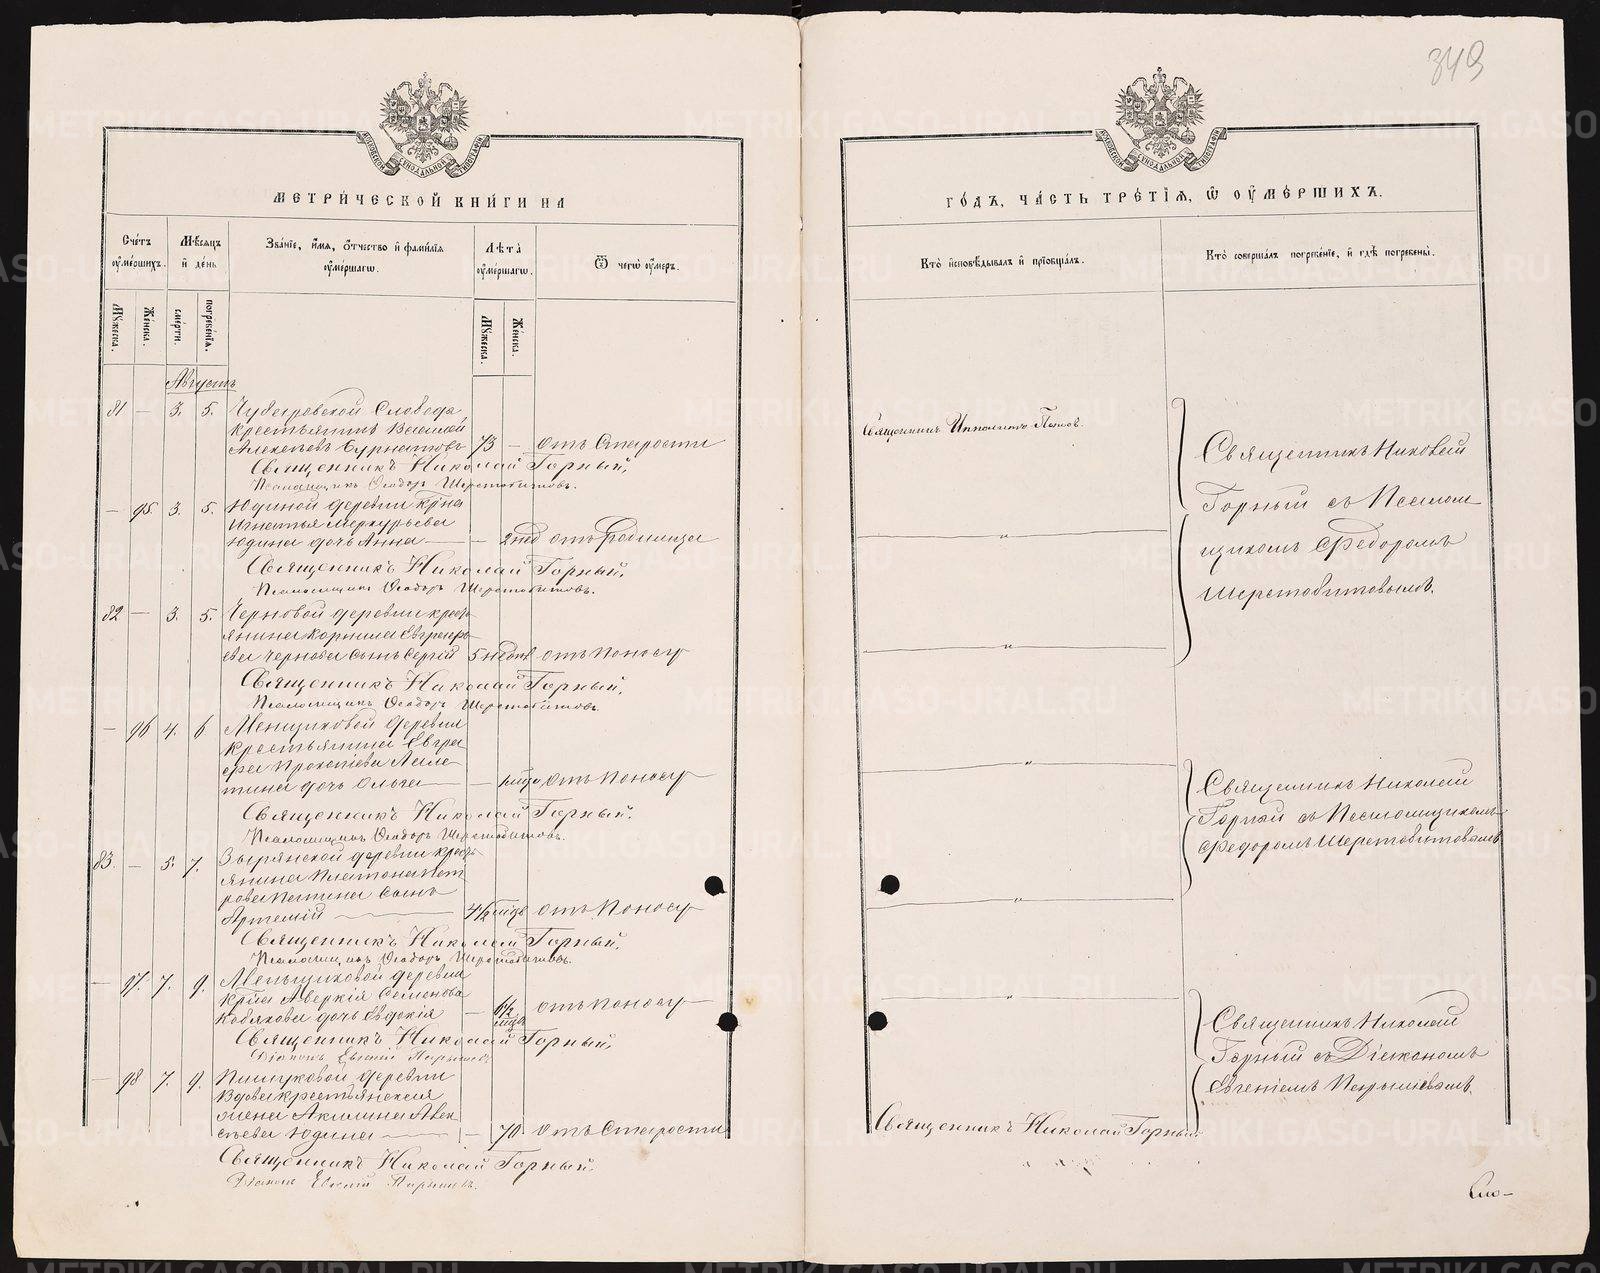 349
МОСКОВСКОЙ СѴНОДАЛЬНОЙ ТИПОГРАФІИ
МОСКОВСКОЙ СѴНОДАЛЬНОЙ ТИПОГРАФІИ
МЕТРИ́ЧЕСКОЙ КНИ́ГИ НА
Сче́тъ ᲂу҆ме́ршихъ.
Мѣ́сяцъ и҆ де́нь
Зва́нїе, и҆́мѧ, ѻ҆́тчество и҆ фами́лїѧ ᲂу҆ме́ршагѡ.
Лѣ́та ᲂу҆ме́ршагѡ.
Ѿ чегѡ̀ ᲂу҆́меръ.
Мꙋ́жеска.
Же́нска.
сме́рти.
погребе́нїѧ.
Мꙋ́жеска.
Же́нска.
Августъ
81 — 3. 5. Слобода
крестьянинъ Василій
Алексѣевъ Бурнатовъ 73 — отъ Старости
Священникъ Николай Горный.
Псаломщикъ Ѳеодоръ Шерстобитовъ.
— 95. 3. 5. Юдиной деревни крна
Игнатья Меркурьева
Юдина дочь Анна — — 2 нед отъ Родимца
Священникъ Николай Горный.
Псаломщикъ Ѳеодоръ Шерстобитовъ.
82 — 3. 5. Черновой деревни кресть
янина Корнила Евграфо
ва Чернова сынъ Сергій 5 отъ Поносу
Священникъ Николай Горный.
Псаломщикъ Ѳеодоръ Шерстобитовъ.
— 96 4. 6 Менщиковой деревни
крестьянина Евгра
фа Прокопіева
тина дочь Ольга — — отъ Поносу
Священникъ Николай Горный.
Псаломщикъ Ѳеодоръ Шерстобитовъ.
83. — 5. 7. Зырянской деревни кресть
янина Платона Пет
рова сынъ
Артемій — 4½ мцъ отъ Поносу
Священникъ Николай Горный.
Псаломщикъ Ѳеодоръ Шерстобитовъ.
— 97. 7. 9. Меньщиковой деревни
крна Аверкія Семенова
Кобякова дочь Евдокія — 6½ отъ Поносу
мцъ
Священникъ Николай Горный.
Діаконъ Евгеній
— 98 7. 9. деревни
Вдова крестьянская
жена Акилина Алек
сѣева Юдина — — 70. отъ Старости
Священникъ Николай Горный.
Діаконъ Евгеній
ГО́ДЪ, ЧА́СТЬ ТРЕ́ТЇѦ, Ѽ ᲂУ҆МЕ́РШИХЪ.
Кто̀ и҆сповѣ́дывалъ и҆ прїѡбща́лъ.
Кто̀ соверша́лъ погребе́нїе, и҆ гдѣ̀ погребены̀.
Священникъ Ипполитъ Поповъ.
Священникъ Николай
Горный съ Псалом
щикомъ Ѳедоромъ
Шерстобитовымъ.
"
"
"
Священникъ Николай
Горный съ Псаломщикомъ
Ѳедоромъ Шерстобитовымъ
"
"
Священникъ Николай
Горный съ Діякономъ
Евгеніемъ
Священникъ Николай Горный